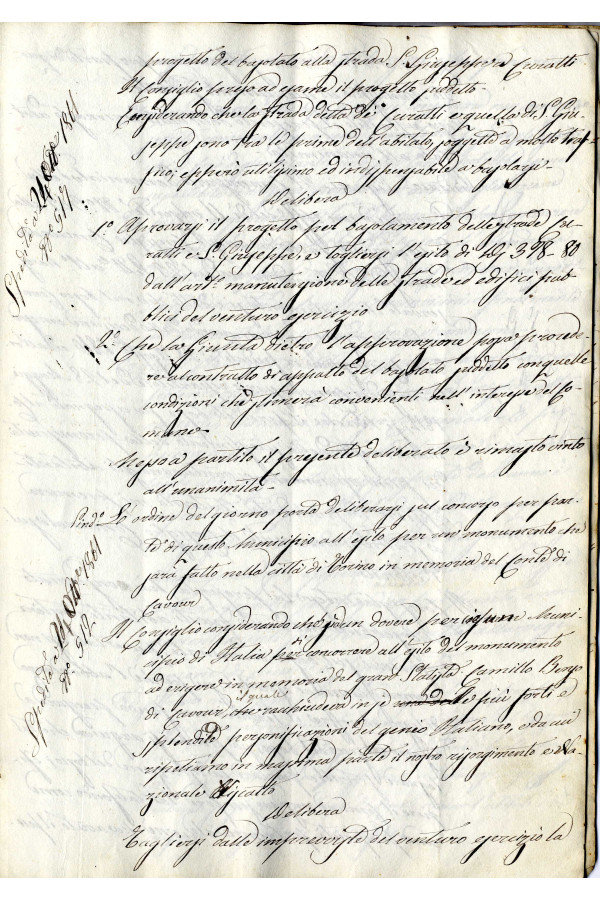 progetto del basolato alla strada S. Giuseppe e Curatti
Il Consiglio preso ad esame il progetto suddetto
Considerando che la strada detta dei Curatti e quella di S. Giu-
seppe sono fra le prime dell'abitato, soggette a molto traf-
fico; epperò utilissimo ed indispensabile a basolarsi
Delibera
1° Aprovarsi il progetto pel basolamento delle strade Cu-
ratti e S. Giuseppe, e togliersi l'esito di 398-80
dall'art° manutenzione delle strade ed edifici pub-
blici del venturo esercizio
2° Che la Giunta dietro l'approvazione possa procede-
re al contratto di appalto del basolato suddetto con quelle
condizioni che stimerà convenienti nell'interesse del Co-
mune
Messo a partito il presente deliberato è rimasto vinto
all'unanimità
Lo ordine del giorno porta deliberarsi sul concorso per par-
te di questo Municipio all'esito per un monumento che
sarà fatto nella città di Torino in memoria del Conte di
Cavour
Il Consiglio considerando che sia un dovere per ognun Muni-
cipio di Italia di concorrere all'esito del monumento
ad erigere in memoria del gran Statista Camillo Benso
di Cavour, il quale racchiudeva in se più forti e
splendide personificazioni del genio Italiano, e da cui
ripetiamo in massima parte il nostro risorgimento e Na-
zionale Riscatto
Delibera
Togliersi dalle impreviste del venturo esercizio la
Spedita a 24 Obre 1861
N° 512
Spedita a 24 Obre 1861
N° 512